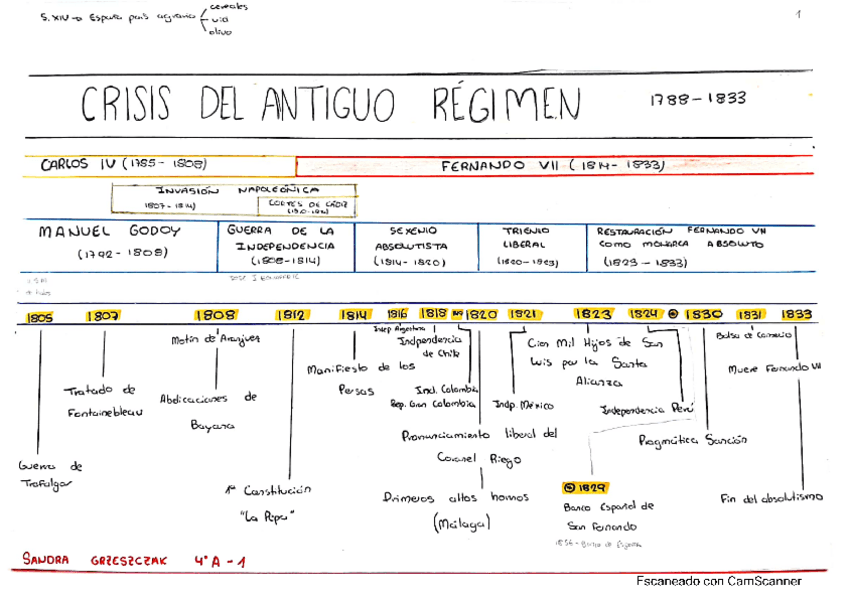 S. XIV → España país agrario
cereales
vid
olivo
1
CRISIS DEL ANTIGUO RÉGIMEN 1788-1833
CARLOS IV (1785-1808)
FERNANDO VII (1814-1833)
INVASIÓN NAPOLEÓNICA
1807-1814)
CORTES DE CÁDIZ
MANUEL GODOY
(1792-1808)
GUERRA DE LA
INDEPENDENCIA
(1808-1814)
SEXENIO
ABSOLUTISTA
(1814-1820)
TRIENIO
LIBERAL
(1820-1823)
RESTAURACIÓN FERNANDO VII
COMO MONARCA ABSOLUTO
(1823-1833)
1805 1807 1808 1812 1814 1816 1818 1820 1821 1823 1824 1830 1831 1833
Guerra de
Trafalgar
Tratado de
Fontainebleau
Motín de Aranjuez
Abdicaciones de
Bayona
1ª Constitución
"La Pepa"
Manifiesto de los
Persas
Indep Argentina
Indpendencia
de Chile
Ind. Colombia
Rep. Gran Colombia
Pronunciamiento liberal del
Coronel Riego
Primeros altos hornos
(Málaga)
Indp. México
Cien Mil Hijos de San
Luis por la Santa
Alianza
Independencia Perú
1829
Banco Español de
San Fernando
1856 - Banco de España
Pragmática Sanción
Bolsa de Comercio
Muere Fernando VII
Fin del absolutismo
SANDRA GRZESZCZAK 4ºA-1
Escaneado con CamScanner